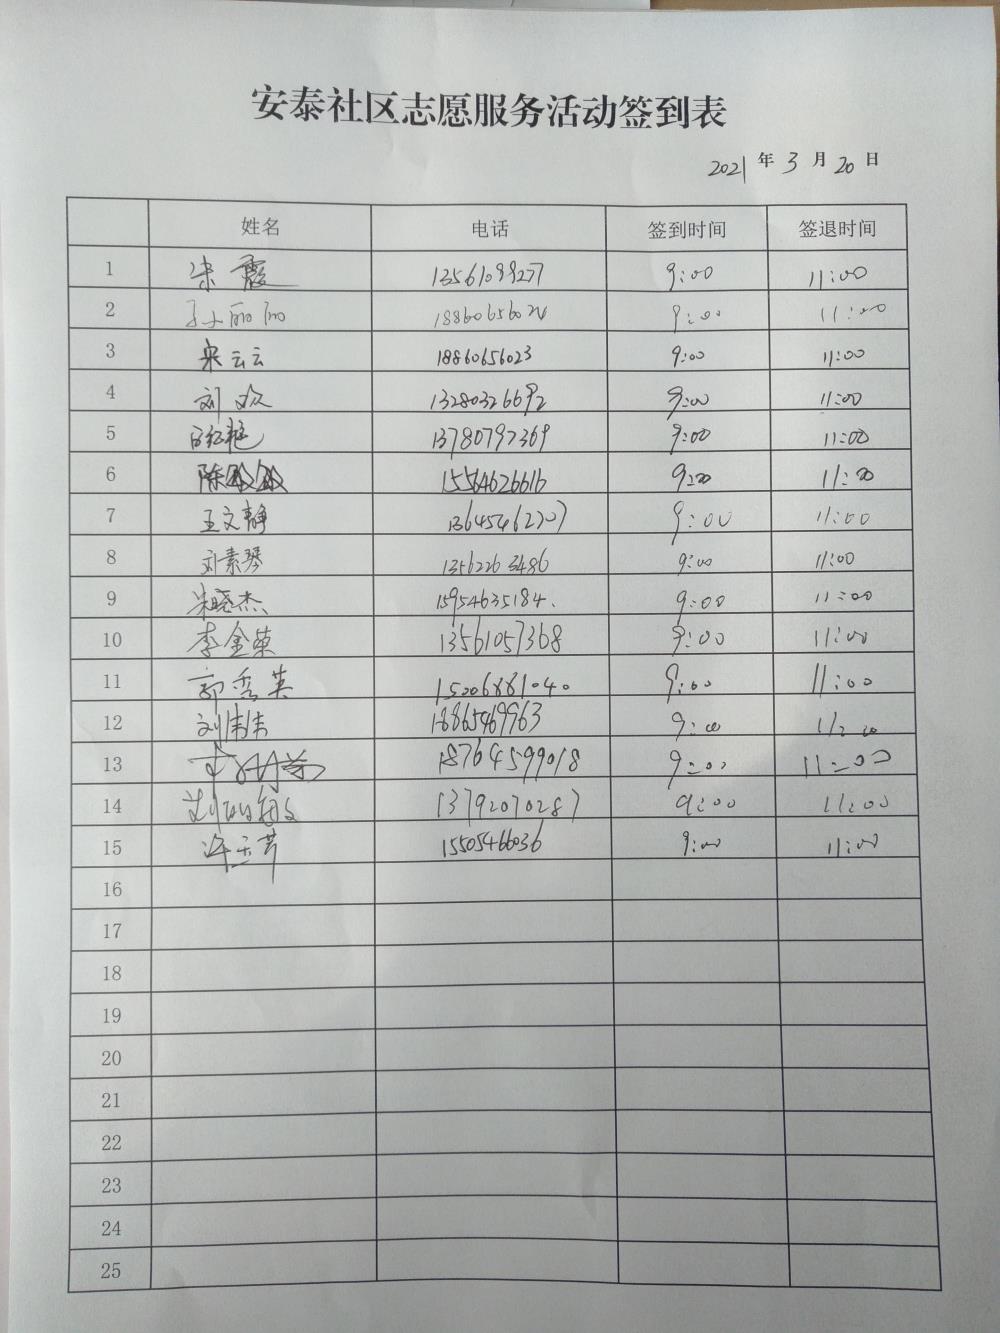 安泰社区志愿服务活动签到表
2021 年 3 月 20 日
姓名 电话 签到时间 签退时间
1 宋霞 13561099277 9:00 11:00
2 孙丽丽 18860656024 9:00 11:00
3 宋云云 18860656023 9:00 11:00
4 刘欢 13280326692 9:00 11:00
5 13780797369 9:00 11:00
6 陈 15564626616 9:00 11:00
7 王文静 13645462707 9:00 11:00
8 刘素琴 13562263486 9:00 11:00
9 朱晓杰 15954635184. 9:00 11:00
10 李金荣 13561057368 9:00 11:00
11 郭秀英 15006881040 9:00 11:00
12 刘伟伟 18865469963 9:00 11:00
13 18764599018 9:00 11:00
14 13792070287 9:00 11:00
15 许玉芹 15505466036 9:00 11:00
16
17
18
19
20
21
22
23
24
25